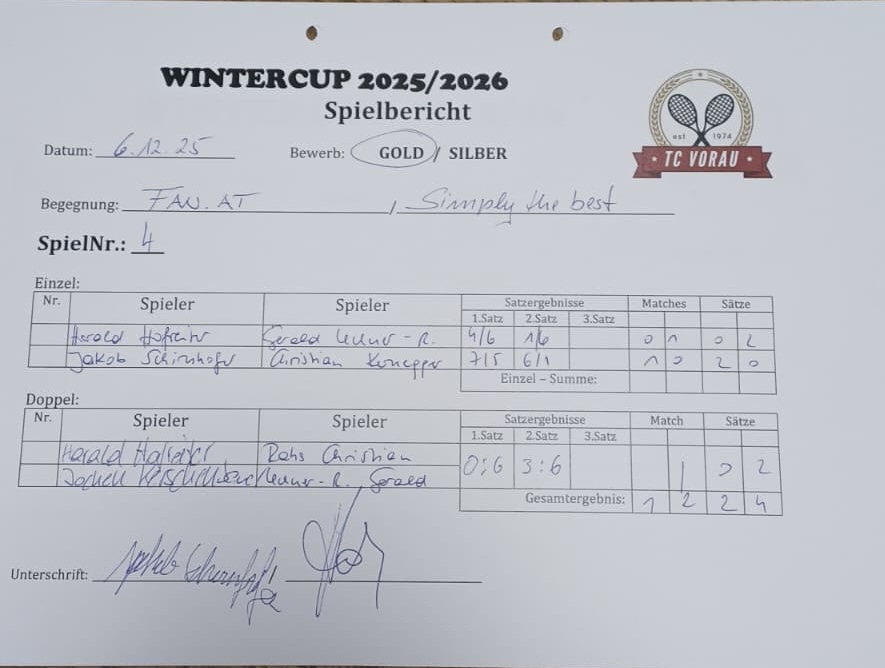 WINTERCUP 2025/2026
Spielbericht
est 1974
TC VORAU
Datum: 6.12.25 Bewerb: GOLD / SILBER
Begegnung: FAN.AT , Simply the best
SpielNr.: 4
Einzel:
Nr. Spieler Spieler Satzergebnisse Matches Sätze
1.Satz 2.Satz 3.Satz
Harald Gerald - R. 4/6 1/6 0 1 0 2
Jakob Schirnhofer Christian Konegger 7/5 6/1 1 0 2 0
Einzel – Summe:
Doppel:
Nr. Spieler Spieler Satzergebnisse Match Sätze
1.Satz 2.Satz 3.Satz
Harald Rohs Christian 0:6 3:6 1 0 2
Jochen - R. Gerald
Gesamtergebnis: 1 2 2 4
Unterschrift: